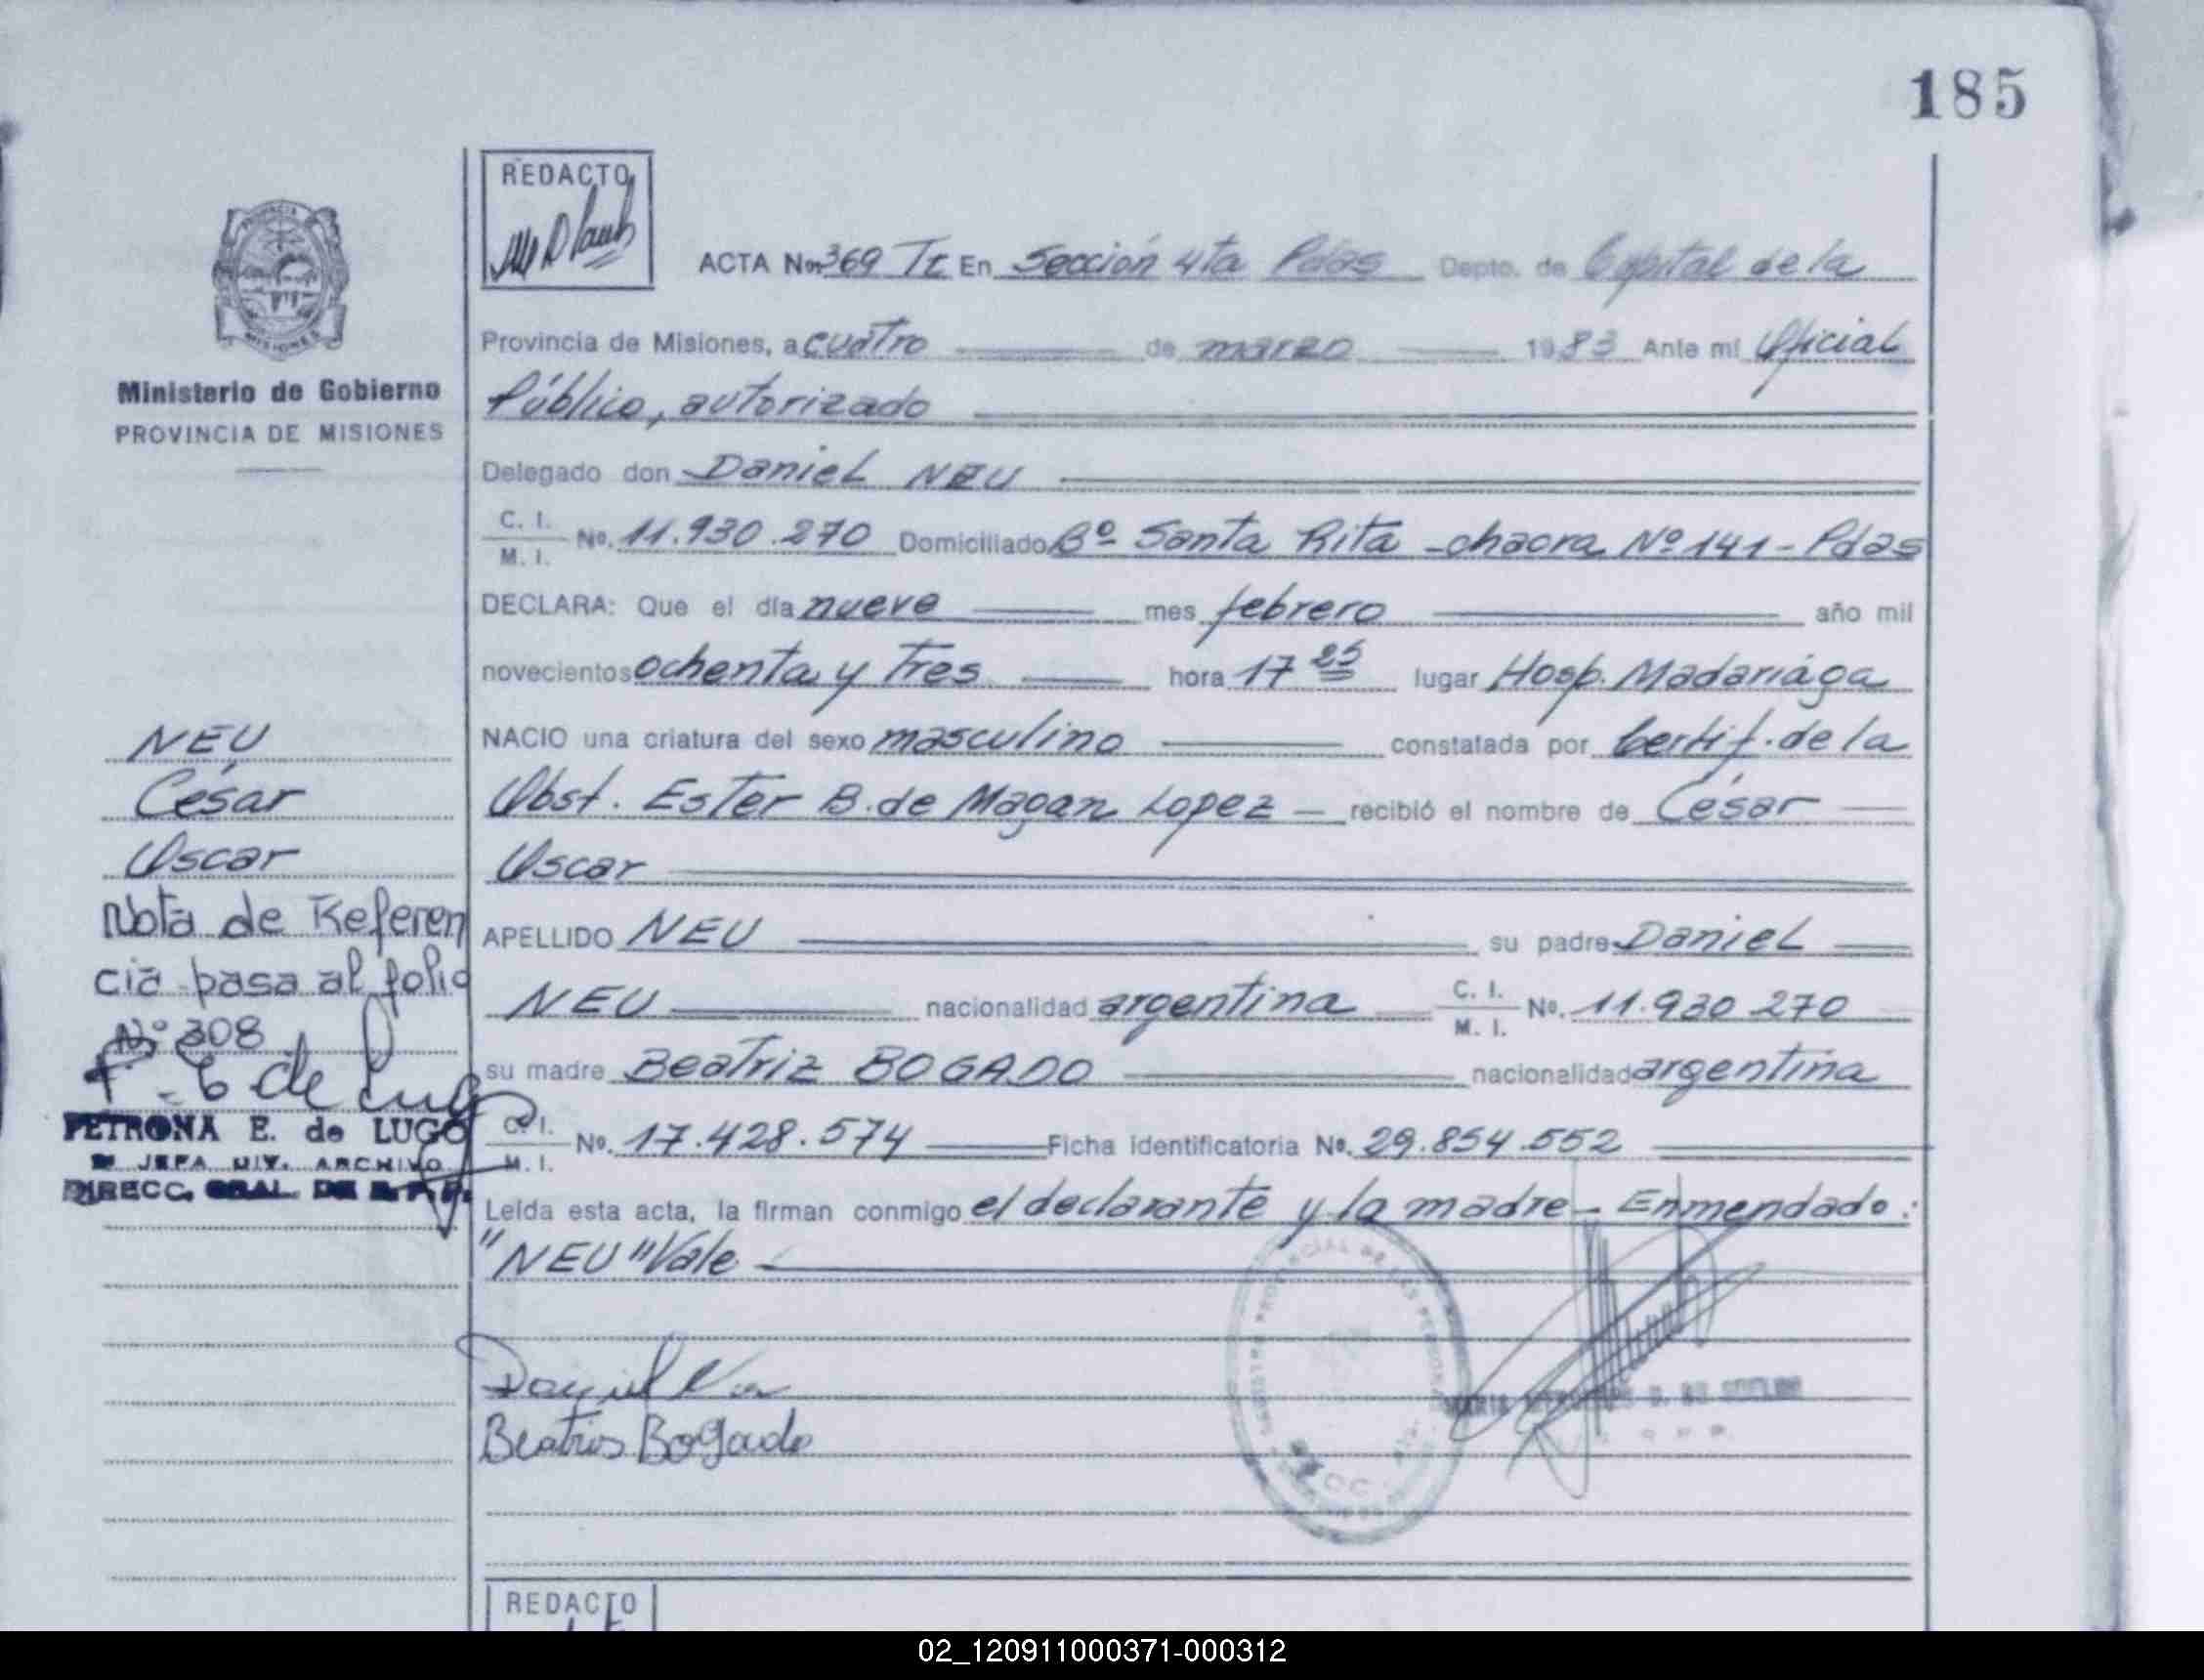 185
REDACTO
ACTA No. 369 Tr En Sección 4ta Pdas Depto. de Capital de la
Provincia de Misiones, a cuatro de marzo 1983 Ante mí Oficial
Público, autorizado
Delegado don Daniel NEU
C. I. M. I. No. 11.930.270 Domiciliado Bº Santa Rita - chacra Nº 141 - Pdas
DECLARA: Que el día nueve mes febrero año mil
novecientos ochenta y Tres hora 17 25 lugar Hosp. Madariága
NACIO una criatura del sexo masculino constatada por Certif. de la
Obst. Ester B. de Magan Lopez - recibió el nombre de César
Oscar
APELLIDO NEU su padre Daniel
NEU nacionalidad argentina C. I. M. I. No. 11.930 270
su madre Beatriz BOGADO nacionalidad argentina
C. I. M. I. No. 17.428.574 Ficha identificatoria No. 29.854.552
Leída esta acta, la firman conmigo el declarante y la madre - Enmendado:
"NEU" Vale
Beatris Bogado
REDACTO
PROVINCIA
MISIONES
Ministerio de Gobierno
PROVINCIA DE MISIONES
NEU
César
Oscar
Nota de Referen
cia pasa al folio
Nº 308
PETRONA E. de LUGO
JEFA DIV. ARCHIVO
DIRECC. GRAL. DE R. P. P.
02_120911000371-000312